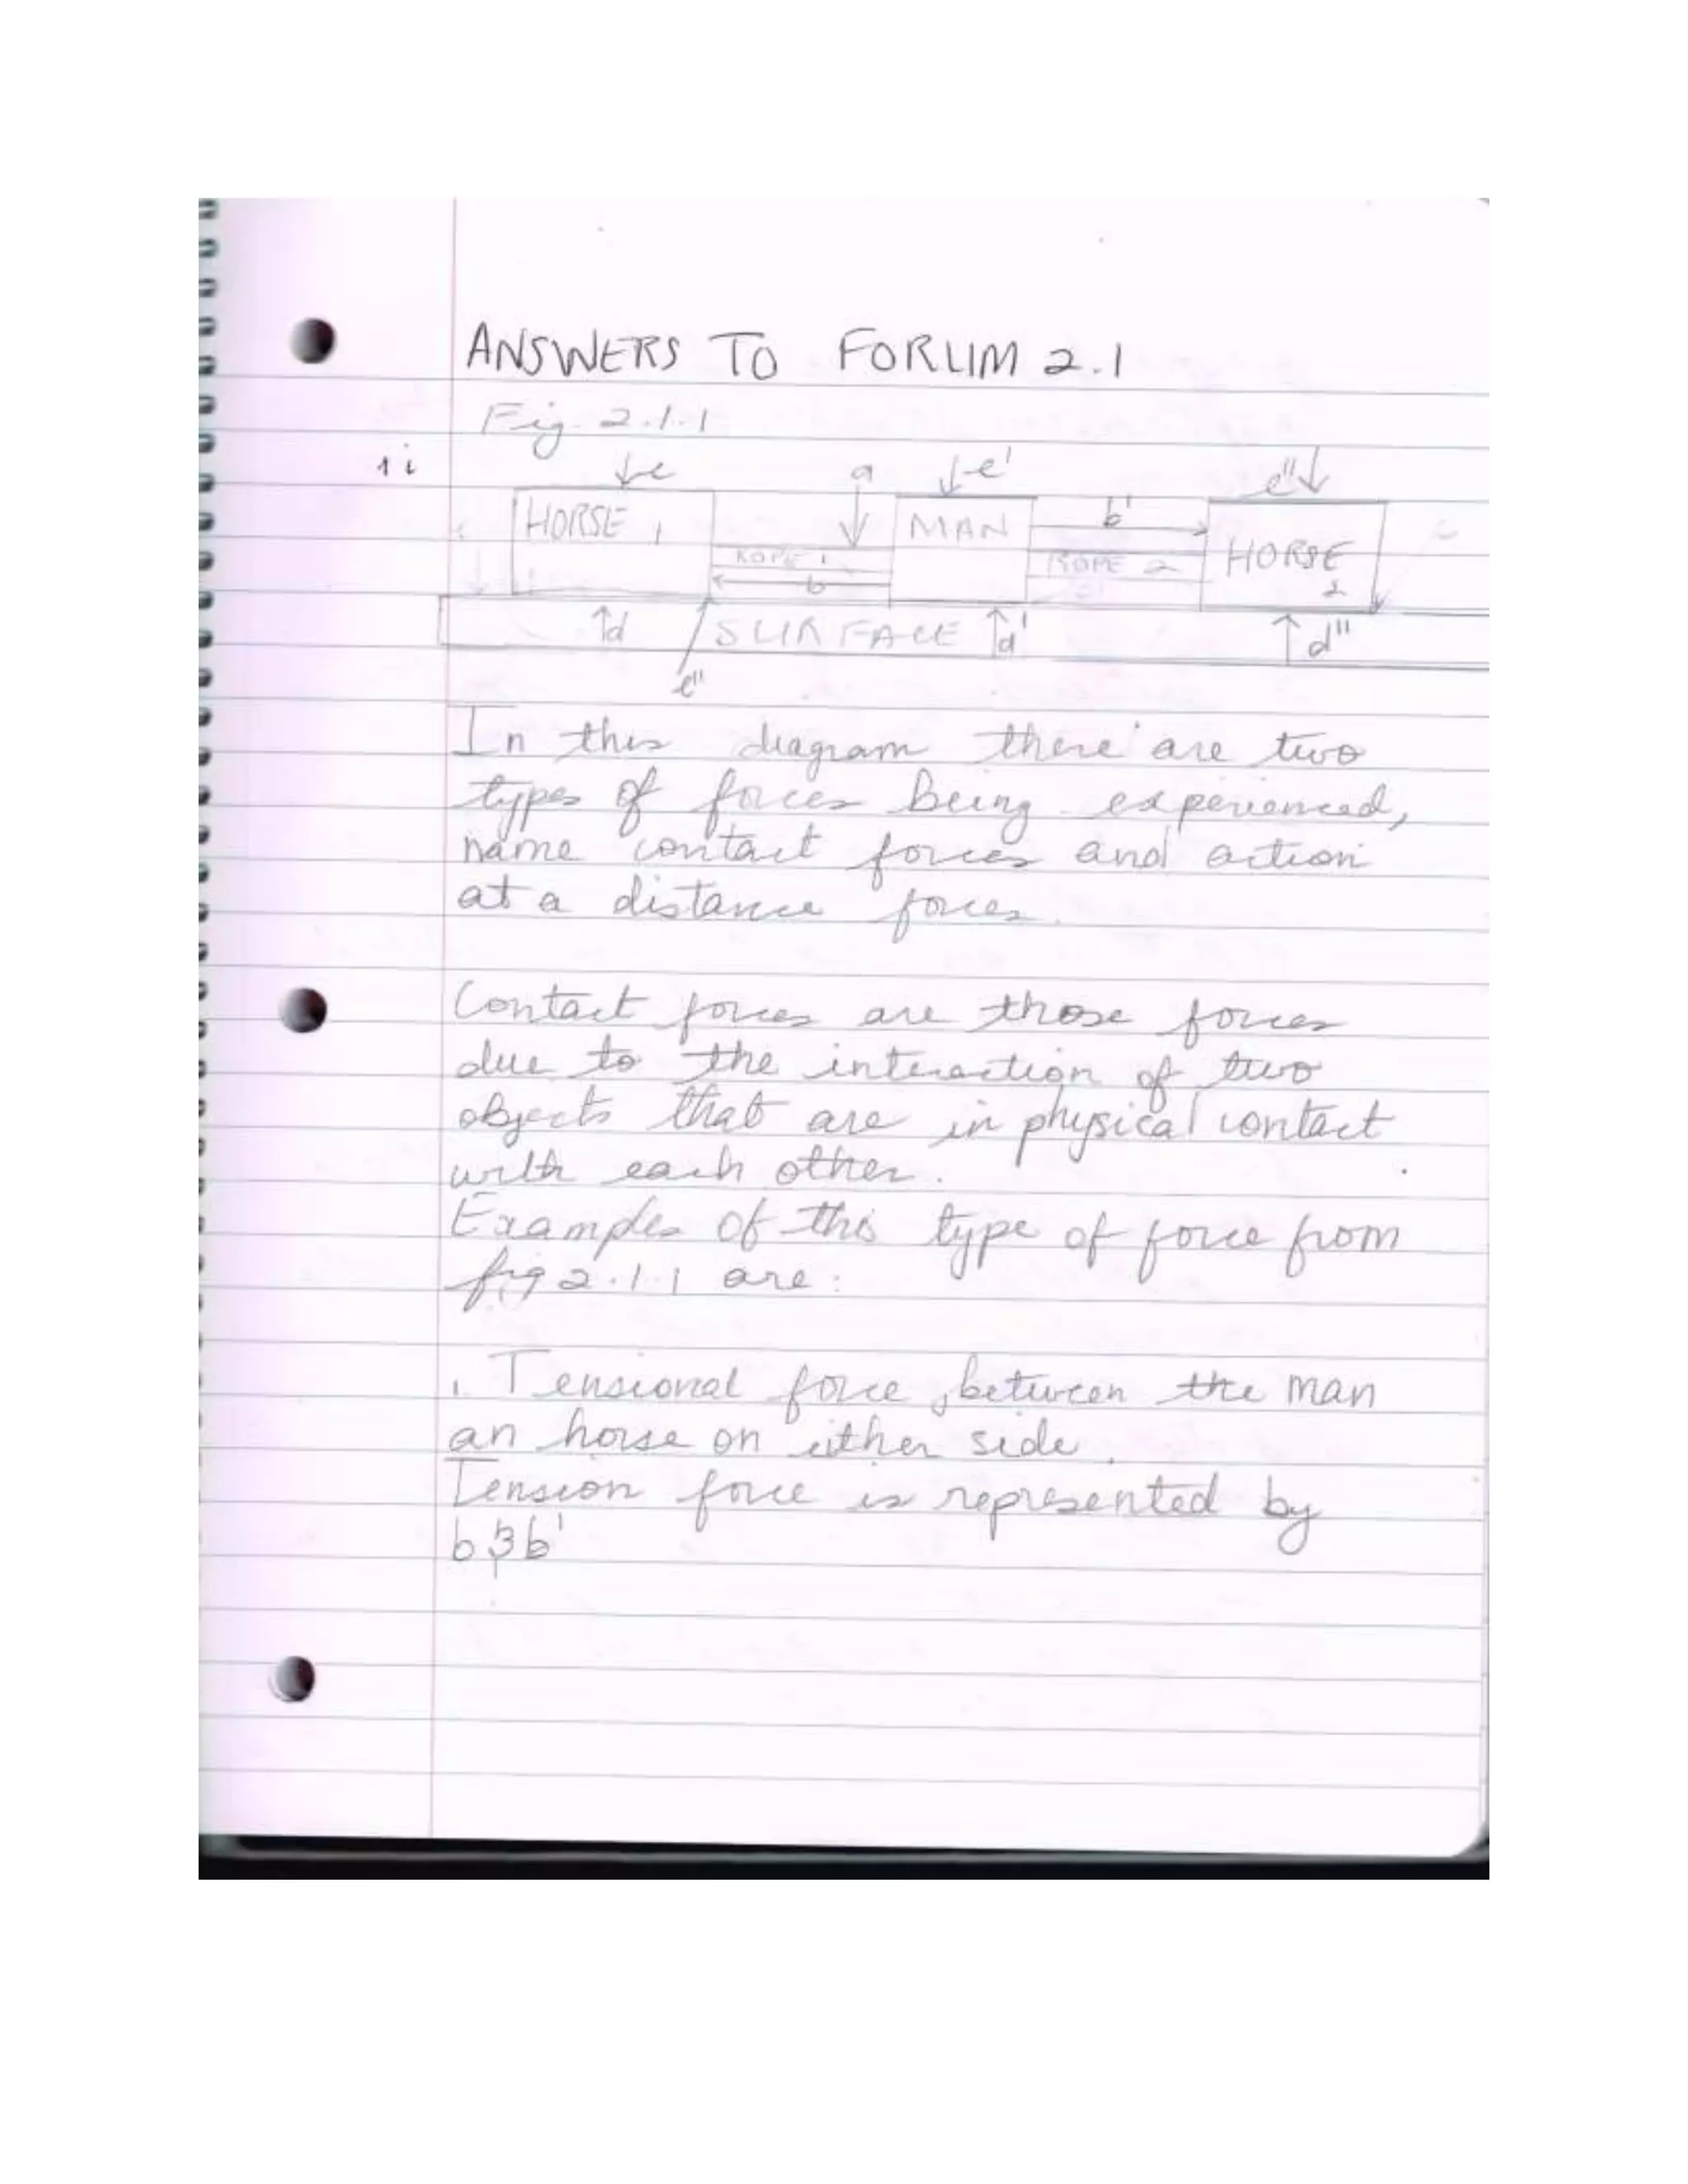 ANSWERS TO FORUM 2.1
Fig. 2.1.1
1 i
e a e' e"
HORSE 1 MAN b' HORSE 2
ROPE 1 ROPE 2
b
d SURFACE d' d"
e"
In this diagram there are two
types of forces being experienced,
name contact forces and action
at a distance forces.
Contact forces are those forces
due to the interaction of two
objects that are in physical contact
with each other.
Examples of this type of force from
fig 2.1.1 are:
1. Tensional force, between the man
an horse on either side.
Tension force is represented by
b & b'